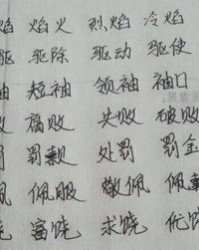 焰 焰火 烈焰 冷焰
驱 驱除 驱动 驱使
袖 短袖 领袖 袖口
腐败 失败 破败
罚 罚款 处罚 罚金
佩 佩服 敬佩 佩
饶 富饶 求饶